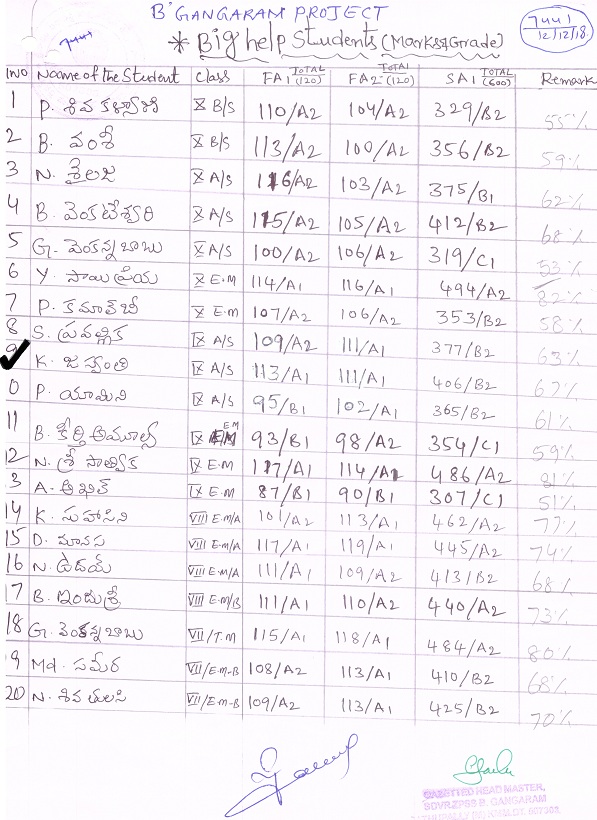 B' GANGARAM PROJECT
7441
7441
12/12/18
* Big help Students (Marks & Grade)
SNO Name of the Student Class FA1 TOTAL (120) FA2 TOTAL (120) SA1 TOTAL (600) Remark
1 P. శివ కళ్యాణి X B/S 110/A2 104/A2 329/B2 55%
2 B. వంశీ X B/S 113/A2 100/A2 356/B2 59%
3 N. శైలజ X A/S 116/A2 103/A2 375/B1 62%
4 B. వెంకటేశ్వరి X A/S 115/A2 105/A2 412/B2 68%
5 G. వెంకన్నబాబు X A/S 100/A2 106/A2 319/C1 53%
6 Y. సాయి ప్రియ X E.M 114/A1 116/A1 494/A2 82%
7 P. కమాల్‌బీ X E.M 107/A2 106/A2 353/B2 58%
8 S. ప్రవల్లిక IX A/S 109/A2 111/A1 377/B2 63%
9 K. జస్వంతి IX A/S 113/A1 111/A1 406/B2 67%
0 P. యామిని IX A/S 95/B1 102/A1 365/B2 61%
11 B. కీర్తి అమూల్య IX EM 93/B1 98/A2 354/C1 59%
12 N. శ్రీ సాత్విక IX E.M 117/A1 114/A1 486/A2 81%
3 A. అఖిల్ IX E.M 87/B1 90/B1 307/C1 51%
14 K. సుహాసిని VIII E.M/A 101/A2 113/A1 462/A2 77%
15 D. మానస VIII E.M/A 117/A1 119/A1 445/A2 74%
16 N. ఉదయ్ VIII E.M/A 111/A1 109/A2 413/B2 68%
17 B. ఇందుశ్రీ VIII E.M/B 111/A1 110/A2 440/A2 73%
18 G. వెంకన్నబాబు VII/T.M 115/A1 118/A1 484/A2 80%
9 Md. సమీర VII/E.M-B 108/A2 113/A1 410/B2 68%
20 N. శివ తులసి VII/E.M-B 109/A2 113/A1 425/B2 70%
GAZETTED HEAD MASTER,
B. GANGARAM